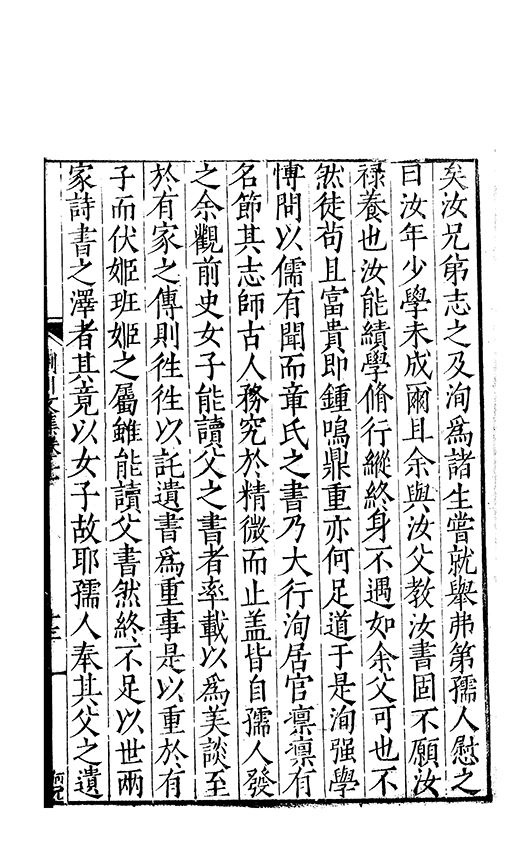 矣汝兄弟志之及洵爲諸生嘗就舉弗第孺人慰之
曰汝年少學未成爾且余與汝父教汝書固不願汝
祿養也汝能績學脩行縱終身不遇如余父可也不
然徒苟且富貴即鍾鳴鼎重亦何足道于是洵强學
愽問以儒有聞而章氏之書乃大行洵居官凛凛有
名節其志師古人務究於精微而止盖皆自孺人發
之余觀前史女子能讀父之書者率載以爲美談至
於有家之傳則徃徃以託遺書爲重事是以重於有
子而伏姬班姬之屬雖能讀父書然終不足以世兩
家詩書之澤者其竟以女子故耶孺人奉其父之遺
川文集卷
十三